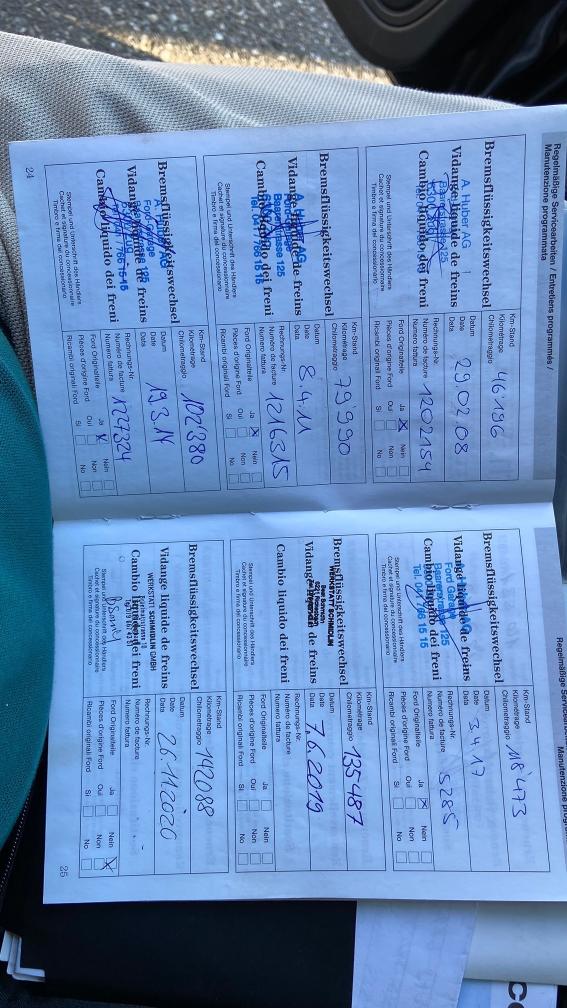 Regelmäßige Servicearbeiten / Entretiens programmés /
Manutenzione programmata
Bremsflüssigkeitswechsel
Vidange liquide de freins
Cambio liquido dei freni
A. Huber AG
Baarerstrasse 125
Stempel und Unterschrift des Händlers
Cachet et signature du concessionnaire
Timbro e firma del concessionario
Km-Stand
Kilométrage
Chilometraggio
46'196
Datum
Date
Data
29.02.08
Rechnungs-Nr.
Numéro de facture
Numero fattura
1202154
Ford Originalteile
Pièces d'origine Ford
Ricambi originali Ford
Ja
Oui
Si
Nein
Non
No
Bremsflüssigkeitswechsel
Vidange liquide de freins
Cambio liquido dei freni
A. Huber AG
Baarerstrasse 125
Stempel und Unterschrift des Händlers
Cachet et signature du concessionnaire
Timbro e firma del concessionario
Km-Stand
Kilométrage
Chilometraggio
79'990
Datum
Date
Data
8.4.11
Rechnungs-Nr.
Numéro de facture
Numero fattura
1216315
Ford Originalteile
Pièces d'origine Ford
Ricambi originali Ford
Ja
Oui
Si
Nein
Non
No
Bremsflüssigkeitswechsel
Vidange liquide de freins
Cambio liquido dei freni
Ford Garage
Stempel und Unterschrift des Händlers
Cachet et signature du concessionnaire
Timbro e firma del concessionario
Km-Stand
Kilométrage
Chilometraggio
102'380
Datum
Date
Data
19.3.14
Rechnungs-Nr.
Numéro de facture
Numero fattura
1227324
Ford Originalteile
Pièces d'origine Ford
Ricambi originali Ford
Ja
Oui
Si
Nein
Non
No
24
Bremsflüssigkeitswechsel
Vidange liquide de freins
Cambio liquido dei freni
Ford Garage
Baarerstrasse 125
Tel. 041 766 15 15
Stempel und Unterschrift des Händlers
Cachet et signature du concessionnaire
Timbro e firma del concessionario
Km-Stand
Kilométrage
Chilometraggio
118'473
Datum
Date
Data
3.4.17
Rechnungs-Nr.
Numéro de facture
Numero fattura
5285
Ford Originalteile
Pièces d'origine Ford
Ricambi originali Ford
Ja
Oui
Si
Nein
Non
No
Bremsflüssigkeitswechsel
WERKSTATT SCHMIDLIN
Vidange liquide de freins
Cambio liquido dei freni
Stempel und Unterschrift des Händlers
Cachet et signature du concessionnaire
Timbro e firma del concessionario
Km-Stand
Kilométrage
Chilometraggio
135'487
Datum
Date
Data
7.6.2019
Rechnungs-Nr.
Numéro de facture
Numero fattura
Ford Originalteile
Pièces d'origine Ford
Ricambi originali Ford
Ja
Oui
Si
Nein
Non
No
Bremsflüssigkeitswechsel
Vidange liquide de freins
WERKSTATT SCHMIDLIN GMBH
Cambio liquido dei freni
Stempel und Unterschrift des Händlers
Cachet et signature du concessionnaire
Timbro e firma del concessionario
Km-Stand
Kilométrage
Chilometraggio
142088
Datum
Date
Data
26.11.2020
Rechnungs-Nr.
Numéro de facture
Numero fattura
Ford Originalteile
Pièces d'origine Ford
Ricambi originali Ford
Ja
Oui
Si
Nein
Non
No
25